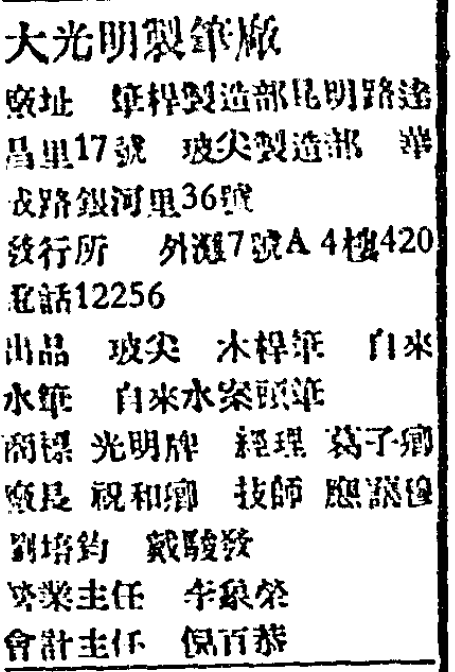 大光明製筆廠
廠址　筆桿製造部昆明路達
昌里17號　玻尖製造部　華
成路銀河里36號
發行所　外灘7號A 4樓420
電話12256
出品　玻尖　木桿筆　自來
水筆　自來水案頭筆
商標 光明牌　經理 葛子卿
廠長 祝和卿　技師 應
劉培鈞　戴駿發
業主任　李 榮
會計主任　倪百恭